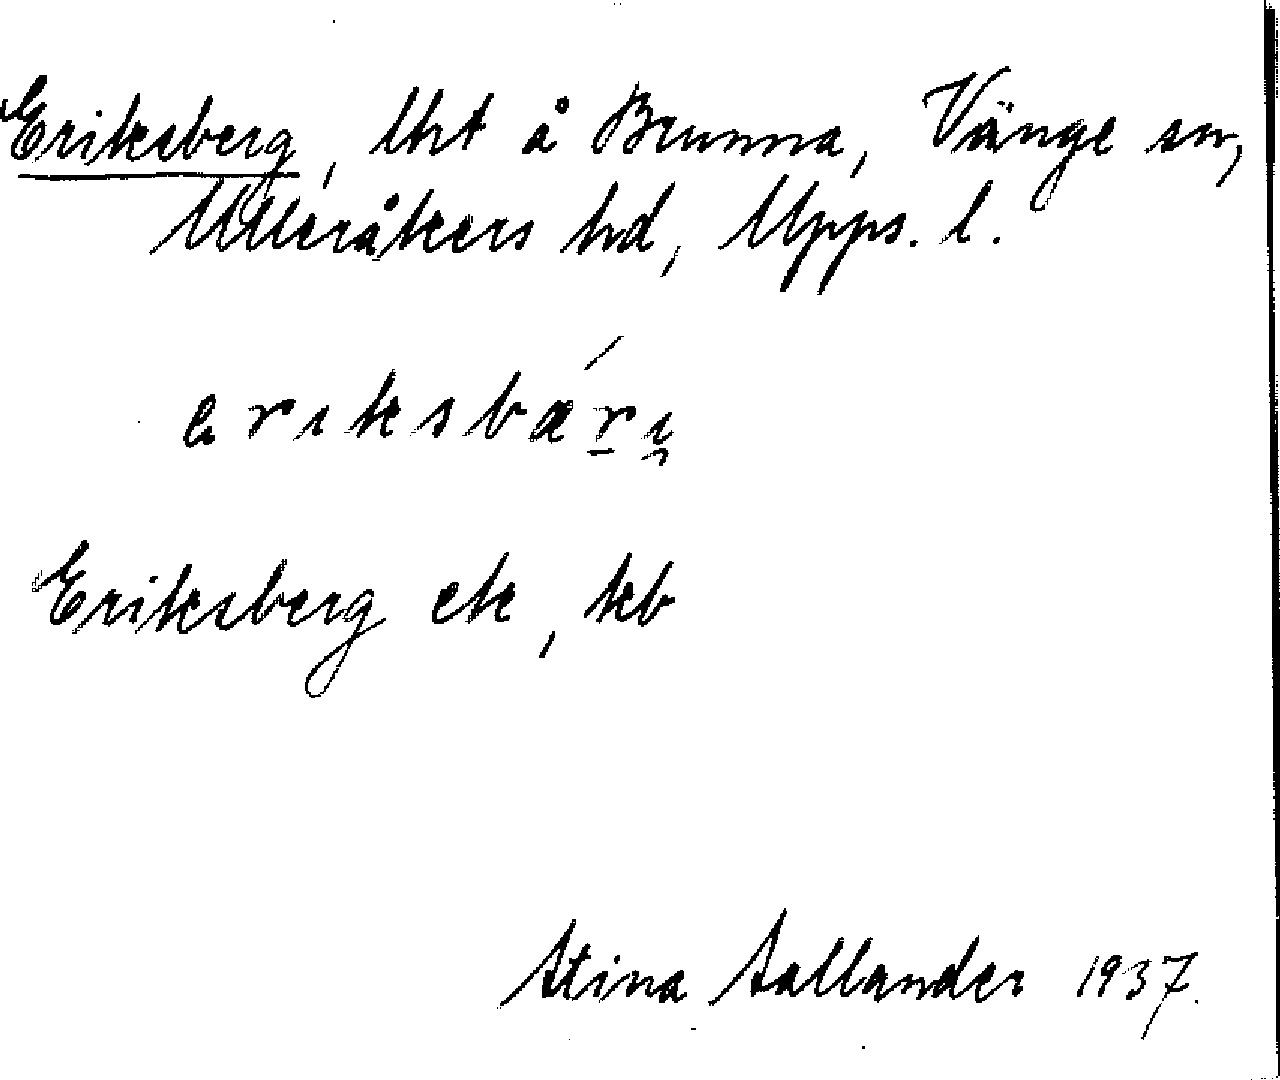 Eriksberg, lht å Brunna, Vänge sn,
Ulleråkers hd, Upps. l.
Eriksberg ek, kb
Stina Sallander 1937.